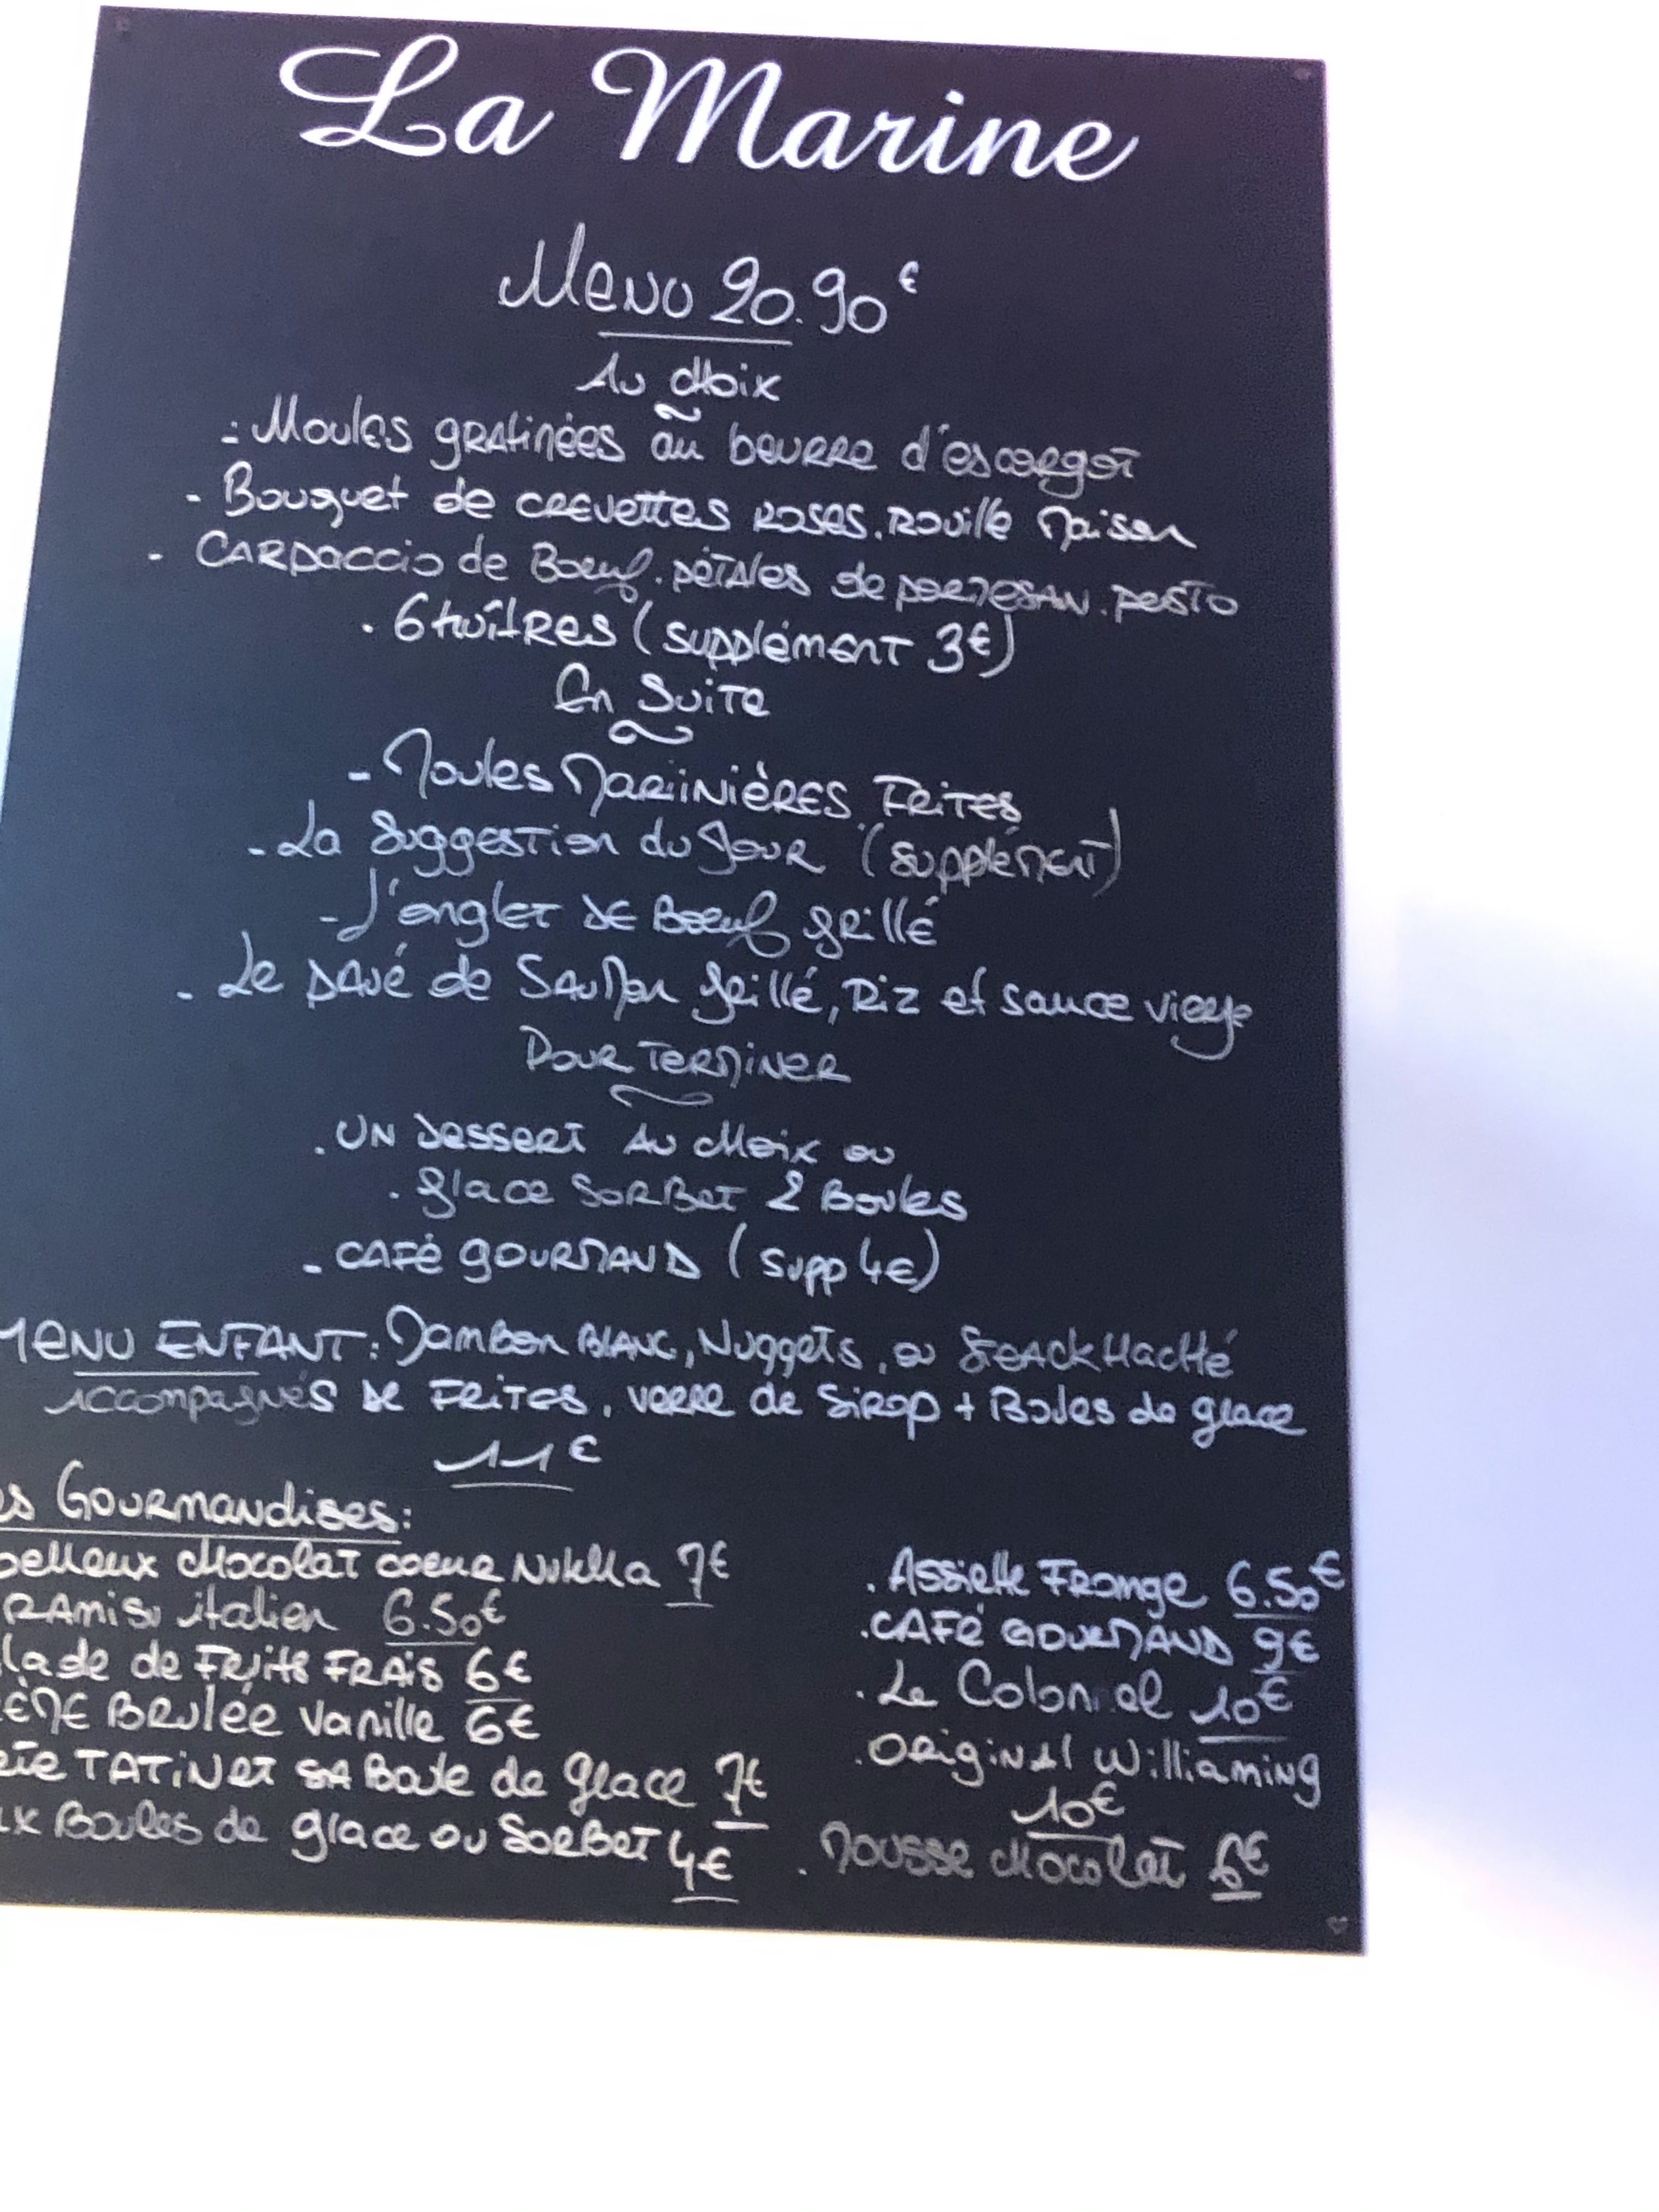 La Marine
Menu 20.90€
Au choix
- Moules gratinées au beurre d'escargot
- Bouquet de crevettes roses, rouille maison
- Carpaccio de Boeuf, pétales de parmesan, pesto
. 6 huîtres (supplément 3€)
En Suite
- Moules Marinières, Frites
- La Suggestion du Jour (supplément)
- L'onglet de Boeuf grillé
- Le pavé de Saumon grillé, Riz et sauce vierge
Pour Terminer
. Un dessert au choix ou
. glace sorbet 2 Boules
- café gourmand (supp 4€)
Menu ENFANT: Jambon Blanc, Nuggets, ou Steack Haché
accompagnés de Frites, verre de Sirop + Boules de glace
11€
es Gourmandises:
elleux chocolat coeur Nutella 7€
ramisu italien 6.50€
lade de Fruits Frais 6€
ème Brulée Vanille 6€
TATiN et sa Boule de glace 7€
ux Boules de glace ou Sorbet 4€
. Assiette Fromage 6.50€
. Café Gourmand 9€
. Le Coloniel 10€
. Original Williaming
10€
. Mousse chocolat 6€